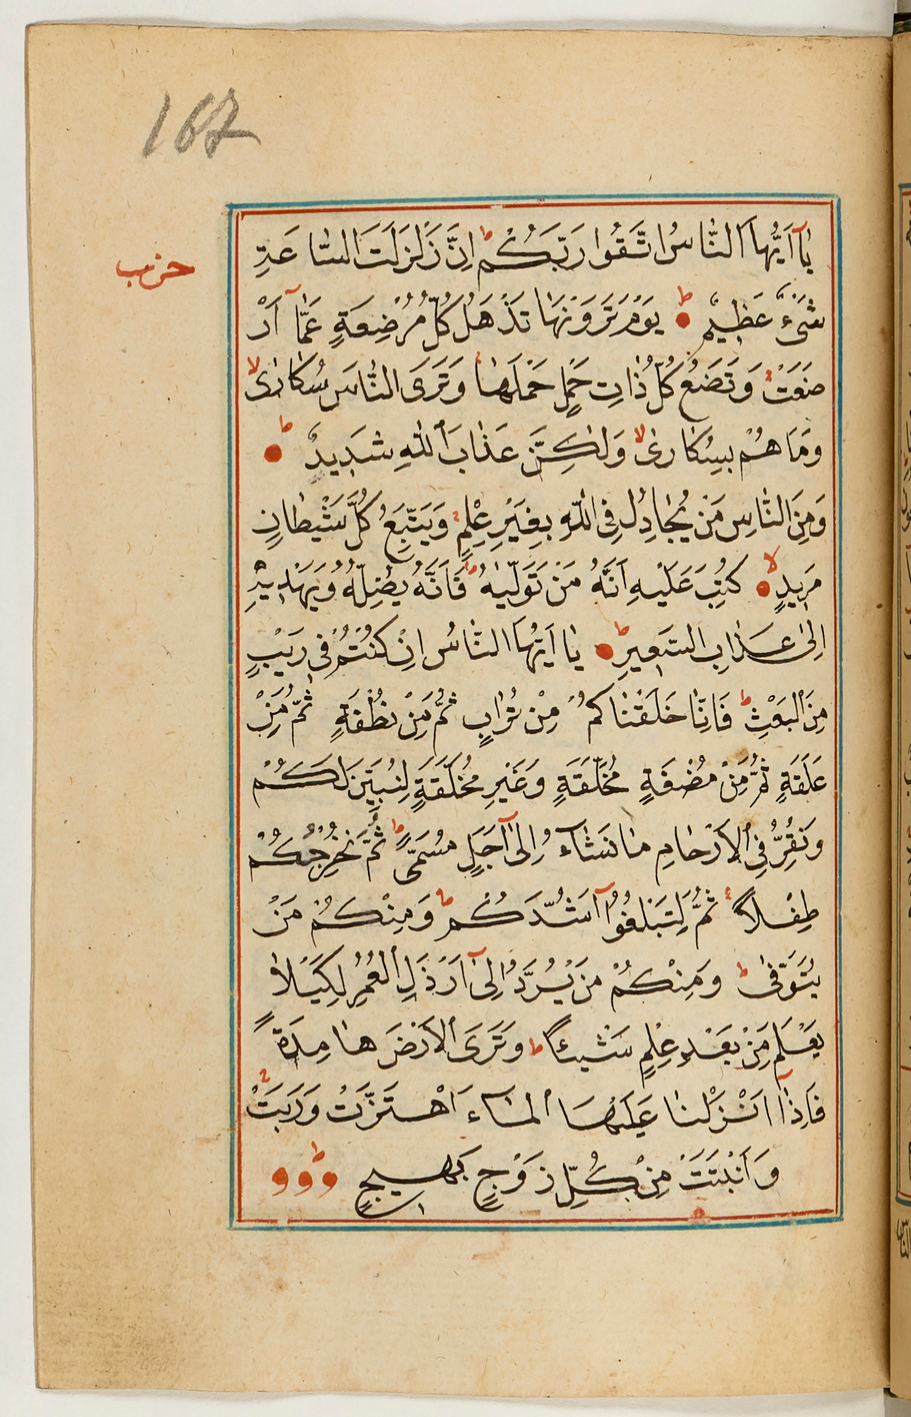 167
حزب
يَٓا اَيُّهَا النَّاسُ اتَّقُوا رَبَّكُمْ ط اِنَّ زَلْزَلَةَ السَّاعَةِ
شَيْءٌ عَظِيمٌ ط يَوْمَ تَرَوْنَهَا تَذْهَلُ كُلُّ مُرْضِعَةٍ عَمَّٓا اَرْ
ضَعَتْ وَتَضَعُ كُلُّ ذَاتِ حَمْلٍ حَمْلَهَا وَتَرَى النَّاسَ سُكَارٰى لا
وَمَا هُمْ بِسُكَارٰى لا وَلٰكِنَّ عَذَابَ اللّٰهِ شَدِيدٌ ط
وَمِنَ النَّاسِ مَنْ يُجَادِلُ فِي اللّٰهِ بِغَيْرِ عِلْمٍ وَيَتَّبِعُ كُلَّ شَيْطَانٍ
مَرِيدٍ لا كُتِبَ عَلَيْهِ اَنَّهُ مَنْ تَوَلَّيٰهُ ط فَاَنَّهُ يُضِلُّهُ وَيَهْدِيهِ
اِلٰى عَذَابِ السَّعِيرِ ط يَا اَيُّهَا النَّاسُ اِنْ كُنْتُمْ فِي رَيْبٍ
مِنَ الْبَعْثِ ط فَاِنَّا خَلَقْنَاكُمْ مِنْ تُرَابٍ ثُمَّ مِنْ نُطْفَةٍ ثُمَّ مِنْ
عَلَقَةٍ ثُمَّ مِنْ مُضْغَةٍ مُخَلَّقَةٍ وَغَيْرِ مُخَلَّقَةٍ لِنُبَيِّنَ لَكُمْ
وَنُقِرُّ فِي الْاَرْحَامِ مَا نَشَٓاءُ اِلٰٓى اَجَلٍ مُسَمًّى ط ثُمَّ نُخْرِجُكُمْ
طِفْلًا ثُمَّ لِتَبْلُغُٓوا اَشُدَّكُمْ ط وَمِنْكُمْ مَنْ
يُتَوَفّٰى ط وَمِنْكُمْ مَنْ يُرَدُّ اِلٰٓى اَرْذَلِ الْعُمُرِ لِكَيْلَا
يَعْلَمَ مِنْ بَعْدِ عِلْمٍ شَيْئًا ط وَتَرَى الْاَرْضَ هَامِدَةً
فَاِذَٓا اَنْزَلْنَا عَلَيْهَا الْمَٓاءَ اهْتَزَّتْ وَرَبَتْ
وَاَنْبَتَتْ مِنْ كُلِّ زَوْجٍ بَهِيجٍ